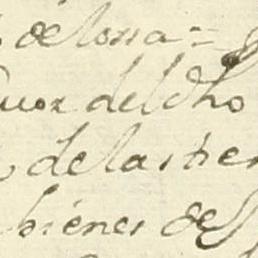 de losa =
uor del dho
de las tier
bienes de